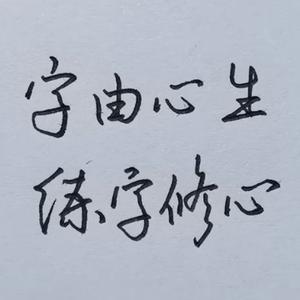 字由心生
练字修心